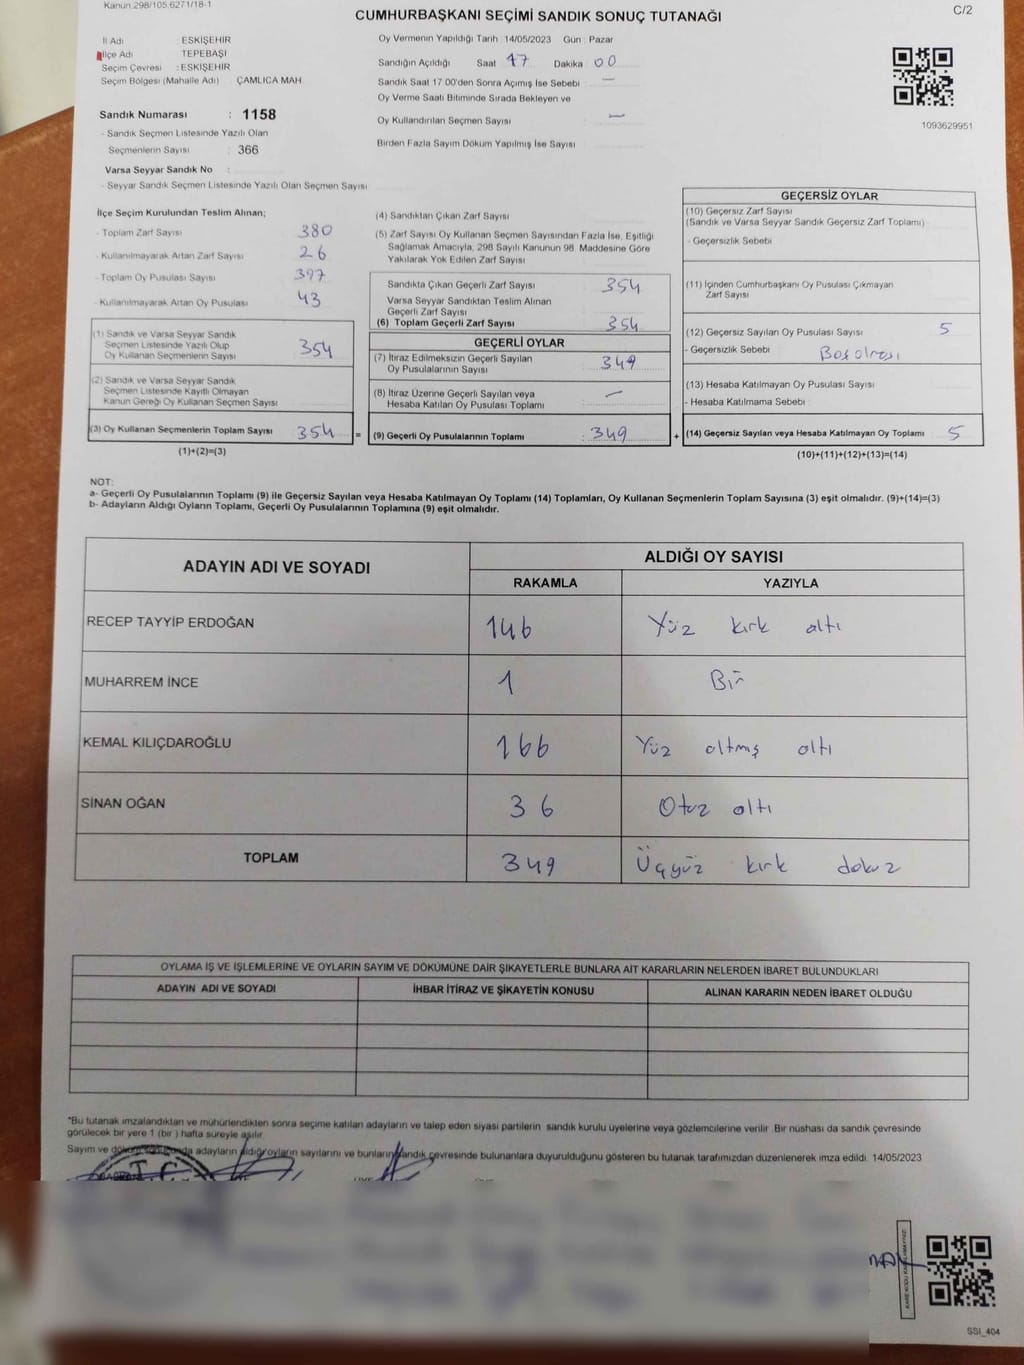 Kanun.298/105.6271/18-1
C/2
CUMHURBAŞKANI SEÇİMİ SANDIK SONUÇ TUTANAĞI
İl Adı : ESKİŞEHİR
İlçe Adı : TEPEBAŞI
Seçim Çevresi : ESKİŞEHİR
Seçim Bölgesi (Mahalle Adı) : ÇAMLICA MAH
Sandık Numarası : 1158
- Sandık Seçmen Listesinde Yazılı Olan
Seçmenlerin Sayısı : 366
Varsa Seyyar Sandık No :
- Seyyar Sandık Seçmen Listesinde Yazılı Olan Seçmen Sayısı
Oy Vermenin Yapıldığı Tarih : 14/05/2023 Gün : Pazar
Sandığın Açıldığı Saat 17 Dakika 00
Sandık Saat 17.00'den Sonra Açımış İse Sebebi : —
Oy Verme Saati Bitiminde Sırada Bekleyen ve
Oy Kullandırılan Seçmen Sayısı : —
Birden Fazla Sayım Döküm Yapılmış İse Sayısı :
1093629951
İlçe Seçim Kurulundan Teslim Alınan;
- Toplam Zarf Sayısı : 380
- Kullanılmayarak Artan Zarf Sayısı : 26
- Toplam Oy Pusulası Sayısı : 397
- Kullanılmayarak Artan Oy Pusulası : 43
(1) Sandık ve Varsa Seyyar Sandık
Seçmen Listesinde Yazılı Olup
Oy Kullanan Seçmenlerin Sayısı 354
(2) Sandık ve Varsa Seyyar Sandık
Seçmen Listesinde Kayıtlı Olmayan
Kanun Gereği Oy Kullanan Seçmen Sayısı
(3) Oy Kullanan Seçmenlerin Toplam Sayısı 354 =
(1)+(2)=(3)
(4) Sandıktan Çıkan Zarf Sayısı
(5) Zarf Sayısı Oy Kullanan Seçmen Sayısından Fazla İse, Eşitliği
Sağlamak Amacıyla, 298 Sayılı Kanunun 98. Maddesine Göre
Yakılarak Yok Edilen Zarf Sayısı
Sandıkta Çıkan Geçerli Zarf Sayısı 354
Varsa Seyyar Sandıktan Teslim Alınan
Geçerli Zarf Sayısı
(6) Toplam Geçerli Zarf Sayısı 354
GEÇERLİ OYLAR
(7) İtiraz Edilmeksizin Geçerli Sayılan
Oy Pusulalarının Sayısı 349
(8) İtiraz Üzerine Geçerli Sayılan veya
Hesaba Katılan Oy Pusulası Toplamı : —
(9) Geçerli Oy Pusulalarının Toplamı : 349 +
GEÇERSİZ OYLAR
(10) Geçersiz Zarf Sayısı
(Sandık ve Varsa Seyyar Sandık Geçersiz Zarf Toplamı)
- Geçersizlik Sebebi
(11) İçinden Cumhurbaşkanı Oy Pusulası Çıkmayan
Zarf Sayısı
(12) Geçersiz Sayılan Oy Pusulası Sayısı 5
- Geçersizlik Sebebi Boş olması
(13) Hesaba Katılmayan Oy Pusulası Sayısı
- Hesaba Katılmama Sebebi
(14) Geçersiz Sayılan veya Hesaba Katılmayan Oy Toplamı : 5
(10)+(11)+(12)+(13)=(14)
NOT:
a- Geçerli Oy Pusulalarının Toplamı (9) ile Geçersiz Sayılan veya Hesaba Katılmayan Oy Toplamı (14) Toplamları, Oy Kullanan Seçmenlerin Toplam Sayısına (3) eşit olmalıdır. (9)+(14)=(3)
b- Adayların Aldığı Oyların Toplamı, Geçerli Oy Pusulalarının Toplamına (9) eşit olmalıdır.
ADAYIN ADI VE SOYADI
ALDIĞI OY SAYISI
RAKAMLA YAZIYLA
RECEP TAYYİP ERDOĞAN 146 Yüz kırk altı
MUHARREM İNCE 1 Bir
KEMAL KILIÇDAROĞLU 166 Yüz altmış altı
SİNAN OĞAN 36 Otuz altı
TOPLAM 349 Üçyüz kırk dokuz
OYLAMA İŞ VE İŞLEMLERİNE VE OYLARIN SAYIM VE DÖKÜMÜNE DAİR ŞİKAYETLERLE BUNLARA AİT KARARLARIN NELERDEN İBARET BULUNDUKLARI
ADAYIN ADI VE SOYADI İHBAR İTİRAZ VE ŞİKAYETİN KONUSU ALINAN KARARIN NEDEN İBARET OLDUĞU
*Bu tutanak imzalandıktan ve mühürlendikten sonra seçime katılan adayların ve talep eden siyasi partilerin sandık kurulu üyelerine veya gözlemcilerine verilir. Bir nüshası da sandık çevresinde
görülecek bir yere 1 (bir) hafta süreyle asılır.
Sayım ve döküm sonucunda adayların aldığı oyların sayılarını ve bunların sandık çevresinde bulunanlara duyurulduğunu gösteren bu tutanak tarafımızdan düzenlenerek imza edildi. 14/05/2023
T.C.
SSI_404